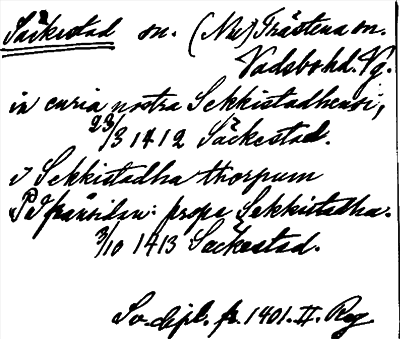 Säckestad sn. (Nu) Trästena sn.
Vadsbo hd. Vg.
in curia nostra Sekkistadhensi,
23/3 1412 Säckestad.
v Sekkistadha thorpum
På framsidan: prope Sekkistadha.
3/10 1413 Seckestad.
Sv. dipl. fr. 1401. II. Reg.